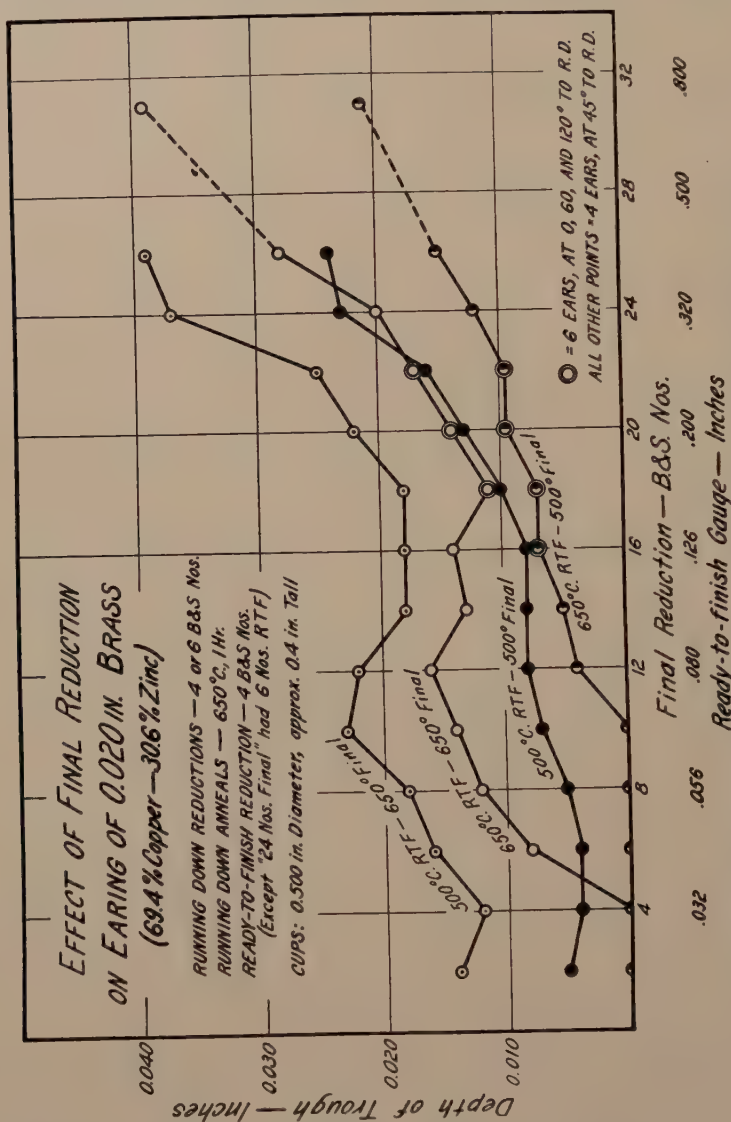 EFFECT OF FINAL REDUCTION
ON EARING OF 0.020 IN. BRASS
(69.4% Copper—30.6% Zinc)
RUNNING DOWN REDUCTIONS—4 or 6 B&S Nos.
RUNNING DOWN ANNEALS—650°C, 1 Hr.
READY-TO-FINISH REDUCTION—4 B&S Nos.
(Except "24 Nos. Final" had 6 Nos. RTF)
CUPS: 0.500 in. Diameter, approx. 0.4 in. Tall
Depth of Trough—Inches
0.040
0.030
0.020
0.010
500°C. RTF-650° Final
650°C. RTF-650° Final
500°C. RTF-500° Final
650°C. RTF-500° Final
= 6 EARS, AT 0, 60, AND 120° TO R.D.
ALL OTHER POINTS = 4 EARS, AT 45° TO R.D.
4 8 12 16 20 24 28 32
Final Reduction—B.&S. Nos.
.032 .056 .080 .126 .200 .320 .500 .800
Ready-to-finish Gauge—Inches